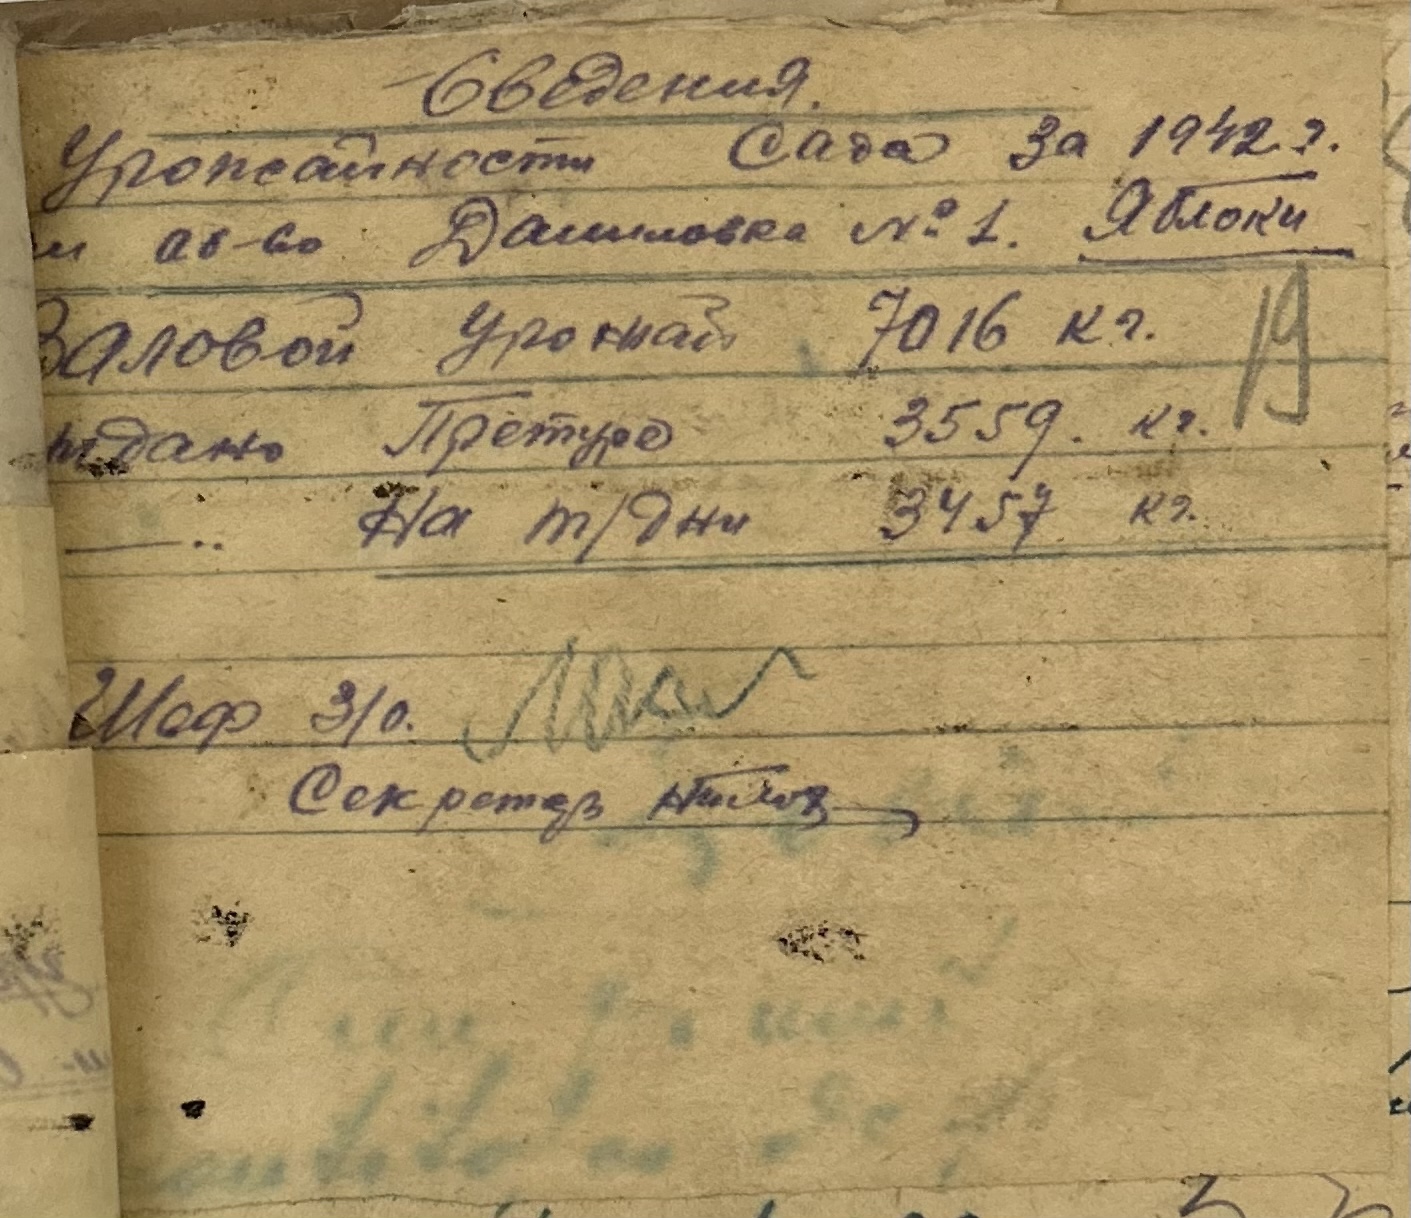 Сведения.
Урожайности Сада за 1942 г.
Даниловка № 1. Яблоки
Валовой урожай 7016 кг.
19
тдано Претуре 3559. кг.
—.. На т/дни 3457 кг.
Шеф З/о.
Секретар